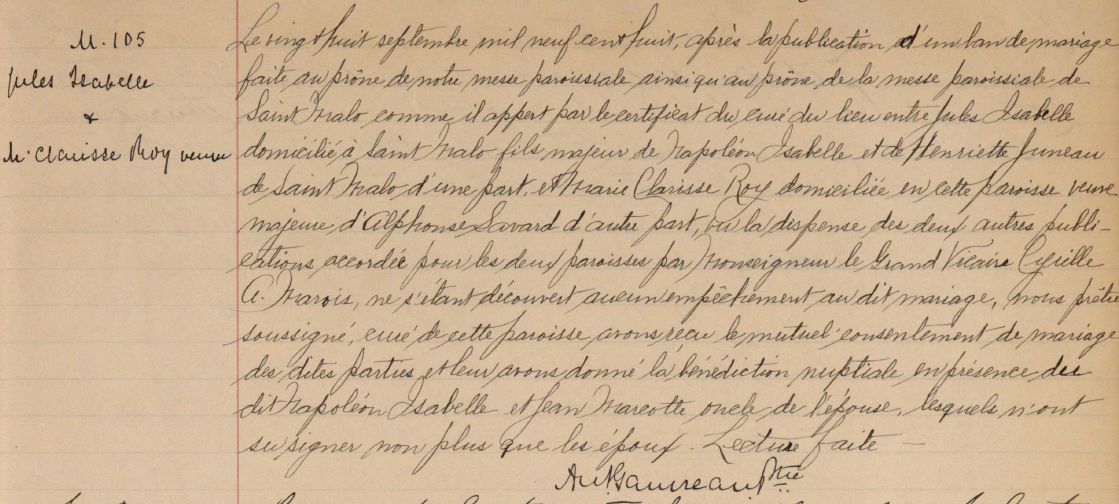 M. 105
Jules Isabelle
&
M. Clarisse Roy veuve
Le vingt huit septembre mil neuf cent huit, après la publication d'un ban de mariage
faite au prône de notre messe paroissiale ainsi qu'au prône de la messe paroissiale de
Saint Malo comme il appert par le certificat du curé du lieu entre Jules Isabelle
domicilié à Saint Malo fils majeur de Napoléon Isabelle et de Henriette Juneau
de Saint Malo d'une part, et Marie Clarisse Roy domiciliée en cette paroisse veuve
majeure d'Alphonse Savard d'autre part, vu la dispense des deux autres publi-
cations accordée pour les deux paroisses par Monseigneur le Grand Vicaire Cyrille
A. Marois, ne s'étant découvert aucun empêchement au dit mariage, nous prêtre
soussigné, curé de cette paroisse avons reçu le mutuel consentement de mariage
des dites parties et leur avons donné la bénédiction nuptiale en présence du
dit Napoléon Isabelle et Jean Marcotte oncle de l'épouse, lesquels n'ont
su signer non plus que les époux. Lecture faite —
Ant. Gauvreau Ptre